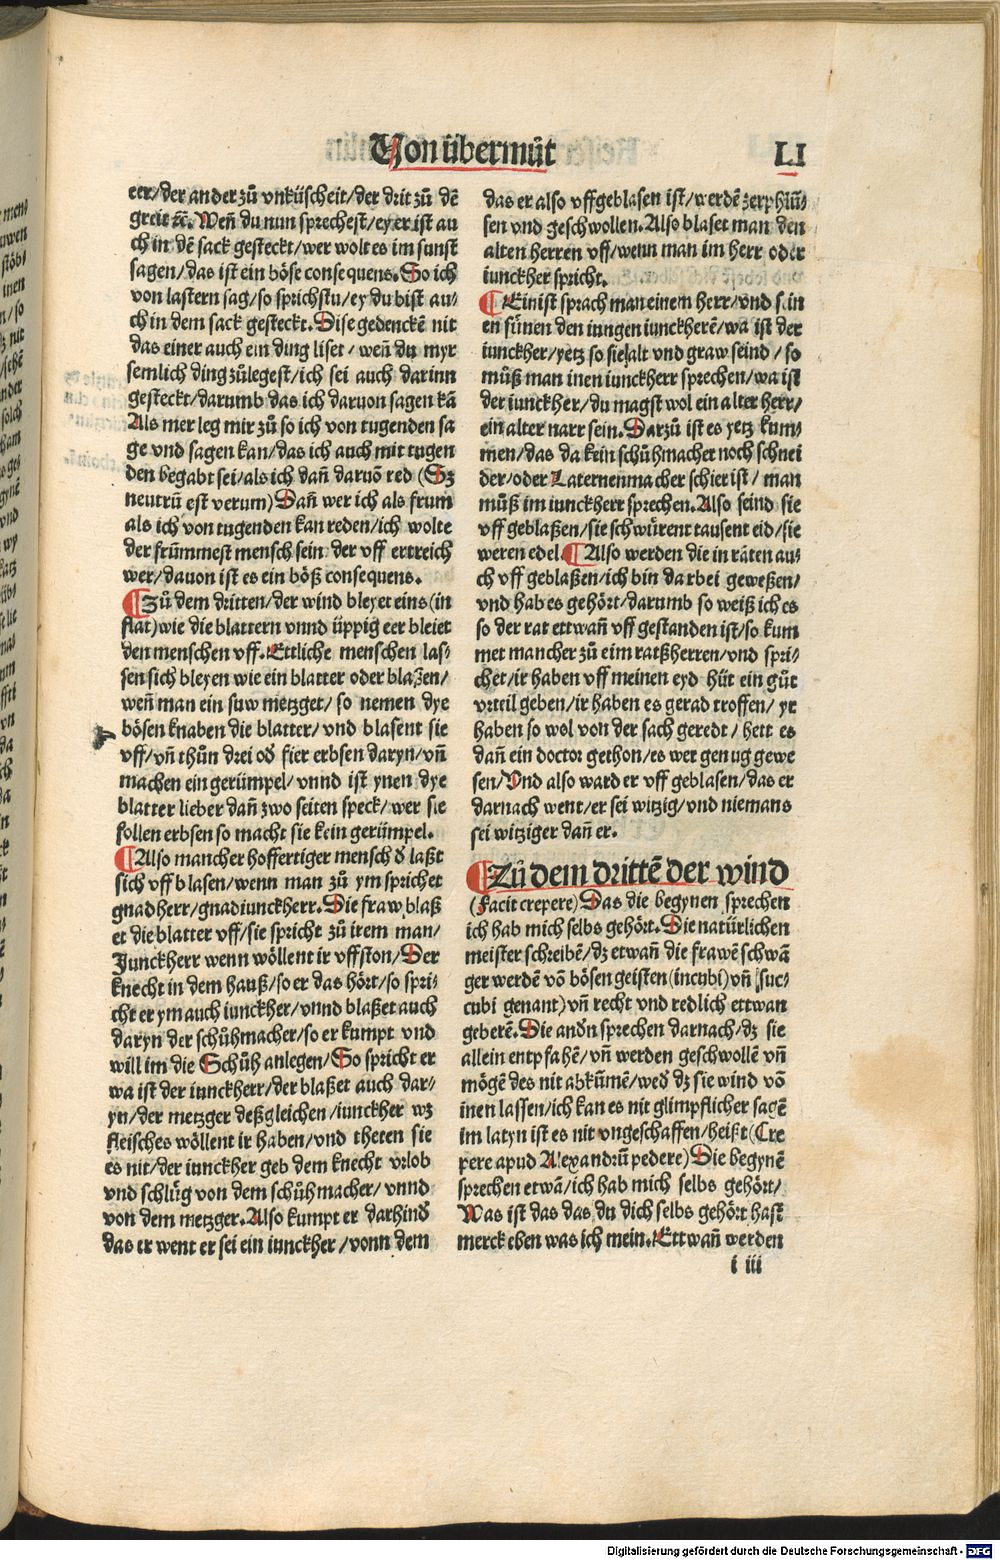 Von übermůt
LI
eer/der ander zů vnküscheit/der drit zů dē
greit ꝛc̄. Weñ du nun sprechest/ey er ist au
ch in dē sack gesteckt/wer wolt es im sunst
sagen/das ist ein böse consequens. So ich
von lastern sag/so sprichstu/ey du bist au/
ch in dem sack gesteckt. Dise gedenckē nit
das einer auch ein ding liset/weñ du myr
semlich ding zůlegest/ich sei auch darinn
gesteckt/darumb das ich daruon sagen kā
Als mer leg mir zů so ich von tugenden sa
ge vnd sagen kan/das ich auch mit tugen
den begabt sei/als ich dañ daruō red (Sꝫ
neutrū est verum) Dañ wer ich als frum
als ich von tugenden kan reden/ich wolte
der frümmest mensch sein der vff ertreich
wer/dauon ist es ein böß consequens.
¶Zů dem dritten/der wind bleyet eins (in
flat) wie die blattern vnnd üppig eer bleiet
den menschen vff. Ettliche menschen las/
sen sich bleyen wie ein blatter oder blaßen/
weñ man ein suw metzget/so nemen dye
bösen knaben die blatter/vnd blasent sie
vff/vñ thůn drei oď fier erbsen daryn/vñ
machen ein gerümpel/vnnd ist ynen dye
blatter lieber dañ zwo seiten speck/wer sie
follen erbsen so macht sie kein gerümpel.
¶Also mancher hoffertiger mensch ď laßt
sich vff blasen/wenn man zů ym sprichet
gnad herr/gnad iunckherr. Die fraw blaß
et die blatter vff/sie spricht zů irem man/
Junckherr wenn wöllent ir vffston/Der
knecht in dem hauß/so er das hört/so spri/
cht er ym auch iunckher/vnnd blaßet auch
daryn der schůhmacher/so er kumpt vnd
will im die Schůh anlegen/So spricht er
wa ist der iunckherr/der blaßet auch dar/
yn/der metzger deßgleichen/iunckher wz
fleisches wöllent ir haben/vnd theten sie
es nit/der iunckher geb dem knecht vrlob
vnd schlüg von dem schůhmacher/vnnd
von dem metzger. Also kumpt er darhinď
das er went er sei ein iunckher/vonn dem
das er also vffgeblasen ist/werdē zerphlū/
sen vnd geschwollen. Also blaset man den
alten herren vff/wenn man im herr oder
iunckher spricht.
¶Einist sprach man einem herr/vnd sein
en sünen den iungen iunckherē/wa ist der
iunckher/yetz so sie alt vnd graw seind/so
můß man inen iunckherr sprechen/wa ist
der iunckher/du magst wol ein alter herr/
ein alter narr sein. Darzů ist es yetz kum/
men/das da kein schůhmacher noch schnei
der/oder Laternenmacher schier ist/man
můß im iunckherr sprechen. Also seind sie
vff geblaßen/sie schwürent tausent eid/sie
weren edel. ¶Also werden die in räten au/
ch vff geblaßen/ich bin darbei geweßen/
vnd hab es gehört/darumb so weiß ich es
so der rat ettwañ vff gestanden ist/so kum
met mancher zů eim ratßherren/vnd spri/
chet/ir haben vff meinen eyd hüt ein gůt
vrteil geben/ir haben es gerad troffen/yr
haben so wol von der sach geredt/hett es
dañ ein doctor gethon/es wer genug gewe
sen/Vnd also ward er vff geblasen/das er
darnach went/er sei witzig/vnd niemans
sei witziger dañ er.
¶Zů dem drittē der wind
(Facit crepere) Das die begynen sprechen
ich hab mich selbs gehört. Die natürlichen
meister schreibē/dz etwañ die frawē schwā
ger werdē vō bösen geisten (incubi) vñ (suc/
cubi genant) vñ recht vnd redlich ettwan
geberē. Die anďn sprechen darnach/dz sie
allein entpfahē/vñ werden geschwollē vñ
mögē des nit abkūmē/weď dz sie wind vō
inen lassen/ich kan es nit glimpflicher sagē
im latyn ist es nit vngeschaffen/heißt (Cre
pere apud Alexandrū pedere) Die begynē
sprechen etwā/ich hab mich selbs gehört/
Was ist das das du dich selbs gehört hast
merck eben was ich mein. Ettwañ werden
i iii
Digitalisierung gefördert durch die Deutsche Forschungsgemeinschaft - DFG